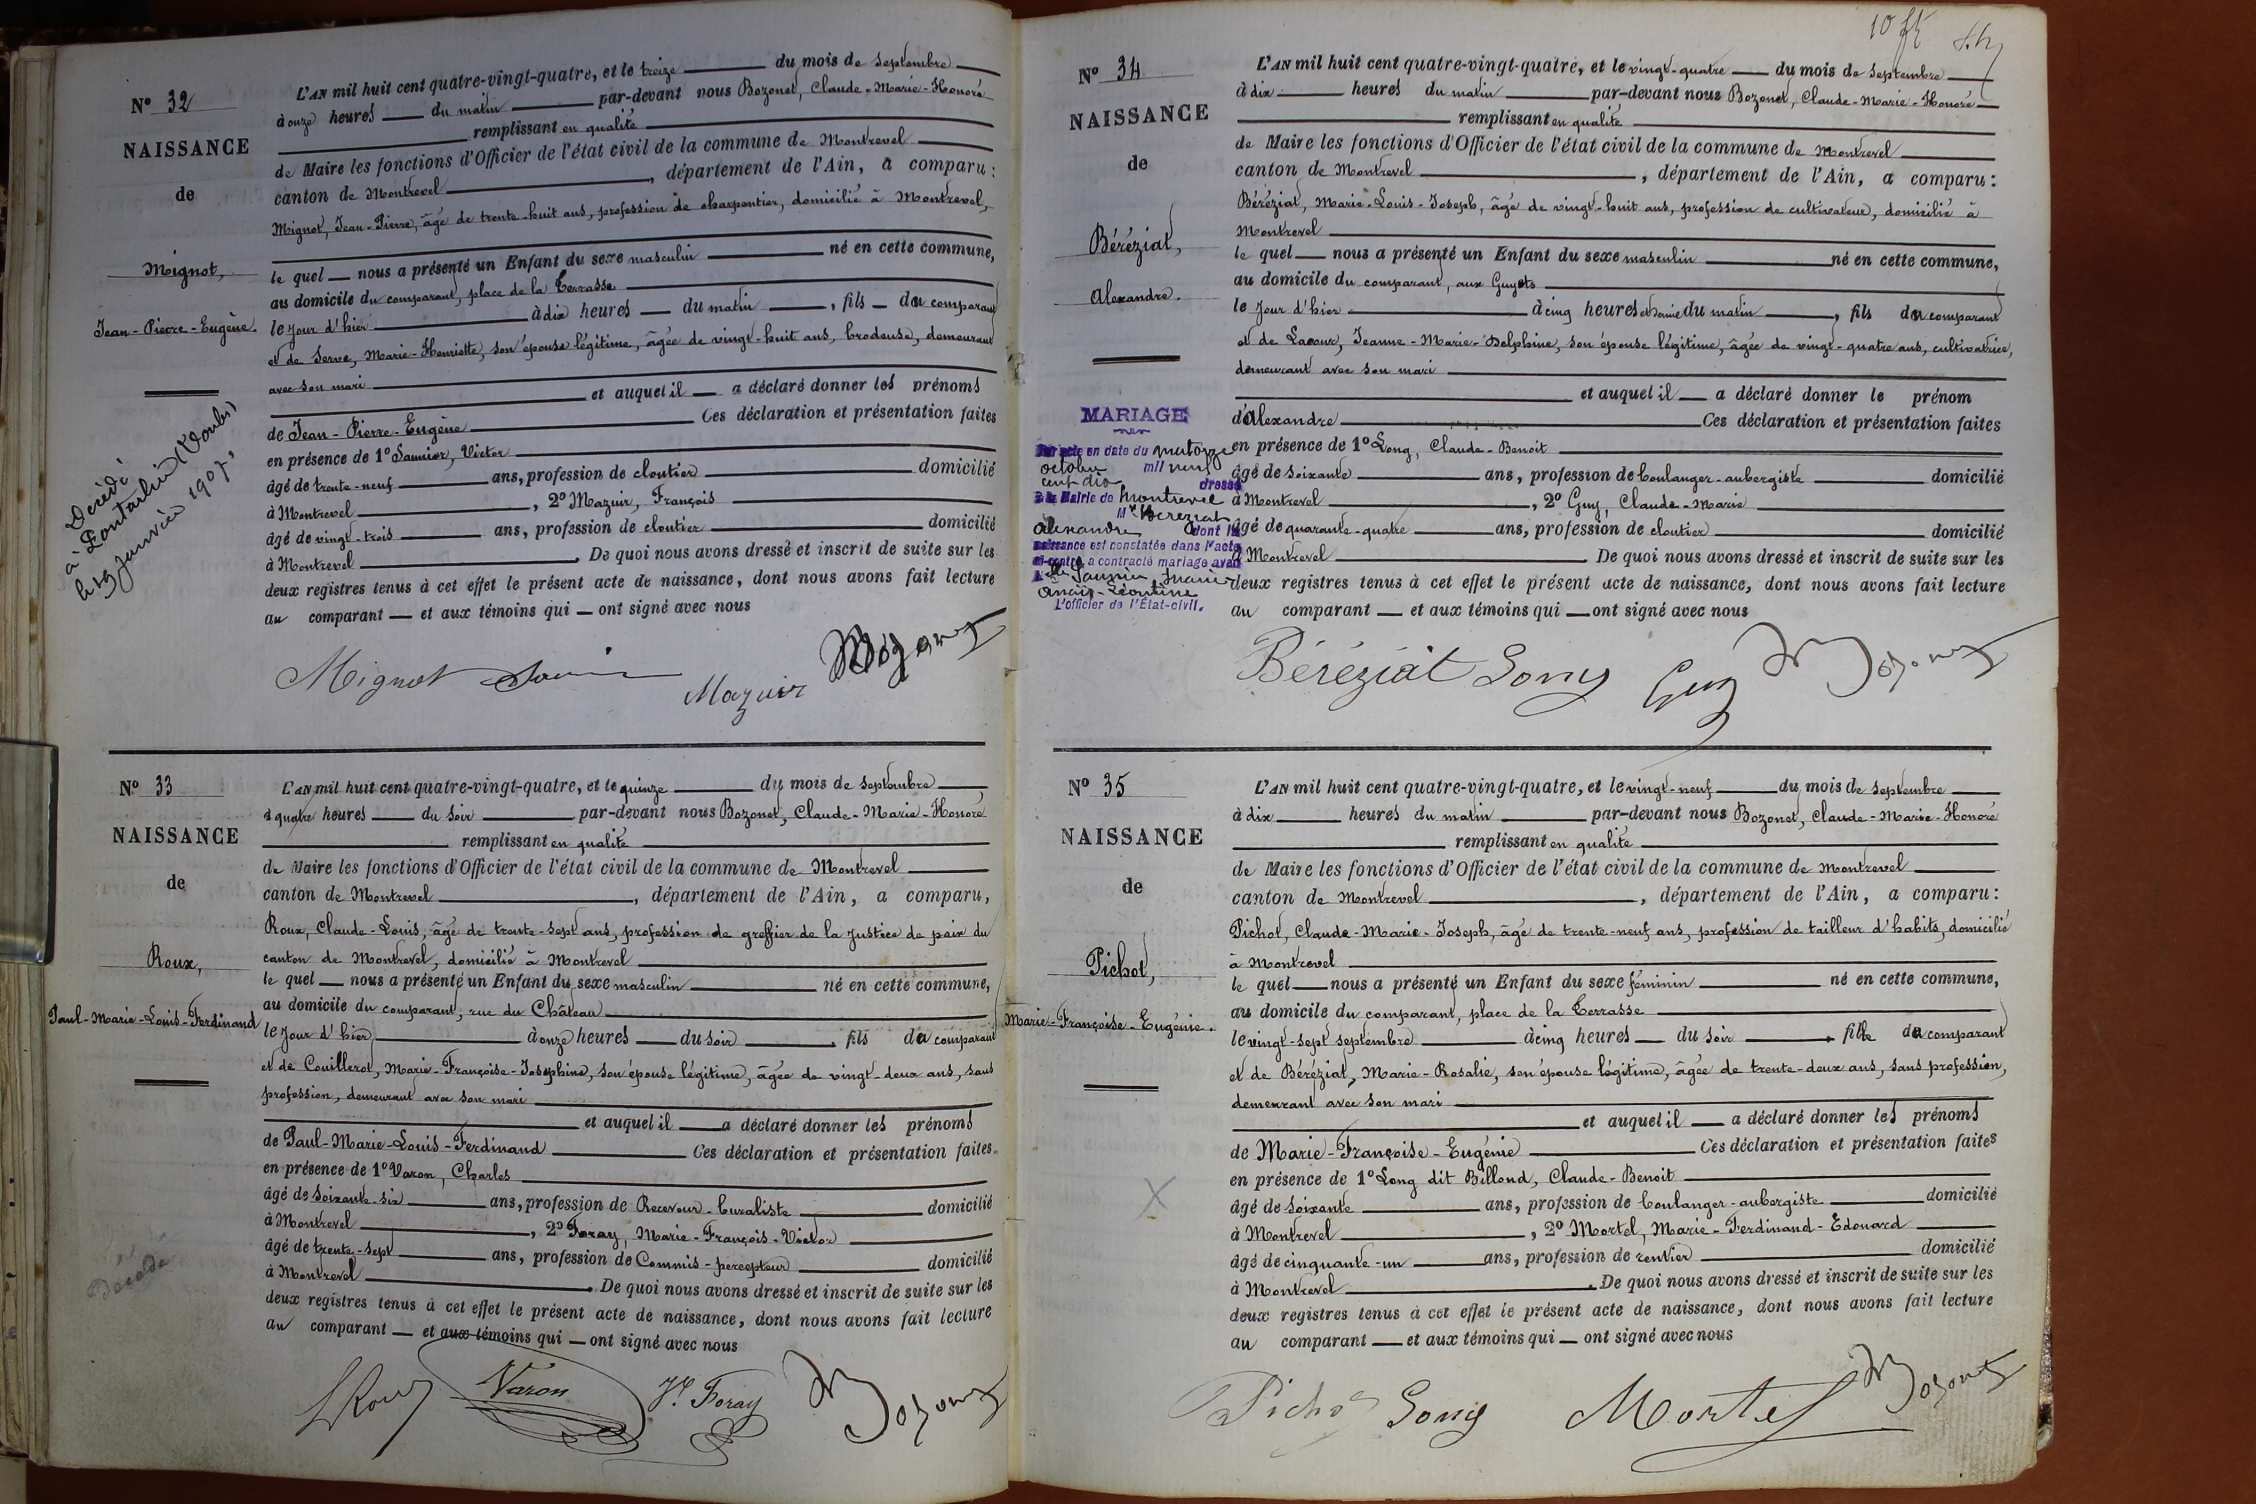 Nº 32
NAISSANCE
de
Mignot,
Jean-Pierre-Eugène.
Décédé
à Pontarlier (Doubs)
janvier 1907.
L'AN mil huit cent quatre-vingt-quatre, et le treize du mois de septembre
à onze heures du matin par-devant nous Bozonet, Claude-Marie-Honoré
remplissant en qualité
de Maire les fonctions d'Officier de l'état civil de la commune de Montrevel
canton de Montrevel, département de l'Ain, a comparu:
Mignot, Jean-Pierre, âgé de trente-huit ans, profession de charpentier, domicilié à Montrevel,
le quel nous a présenté un Enfant du sexe masculin né en cette commune,
au domicile du comparant, place de la Terrasse
le jour d'hier à dix heures du matin, fils du comparant
et de Serve, Marie-Henriette, son épouse légitime, âgée de vingt-huit ans, brodeuse, demeurant
avec son mari
et auquel il a déclaré donner les prénoms
de Jean-Pierre-Eugène Ces déclaration et présentation faites
en présence de 1º Saunier, Victor
âgé de trente-neuf ans, profession de cloutier domicilié
à Montrevel, 2º Mazuir, François
âgé de vingt-trois ans, profession de cloutier domicilié
à Montrevel. De quoi nous avons dressé et inscrit de suite sur les
deux registres tenus à cet effet le présent acte de naissance, dont nous avons fait lecture
au comparant et aux témoins qui ont signé avec nous
Mignot Mazuir Bozonet
Nº 33
NAISSANCE
de
Roux,
Paul-Marie-Louis-Ferdinand
L'AN mil huit cent quatre-vingt-quatre, et le quinze du mois de septembre
à quatre heures du soir par-devant nous Bozonet, Claude-Marie-Honoré
remplissant en qualité
de Maire les fonctions d'Officier de l'état civil de la commune de Montrevel
canton de Montrevel, département de l'Ain, a comparu,
Roux, Claude-Louis, âgé de trente-sept ans, profession de greffier de la Justice de paix du
canton de Montrevel, domicilié à Montrevel
le quel nous a présenté un Enfant du sexe masculin né en cette commune,
au domicile du comparant, rue du Château
le jour d'hier à onze heures du soir, fils du comparant
et de Couillerot, Marie-Françoise-Joséphine, son épouse légitime, âgée de vingt-deux ans, sans
profession, demeurant avec son mari
et auquel il a déclaré donner les prénoms
de Paul-Marie-Louis-Ferdinand Ces déclaration et présentation faites
en présence de 1º Varon, Charles
âgé de soixante-six ans, profession de Receveur-buraliste domicilié
à Montrevel, 2º Foray, Marie-François-Victor
âgé de trente-sept ans, profession de Commis-percepteur domicilié
à Montrevel. De quoi nous avons dressé et inscrit de suite sur les
deux registres tenus à cet effet le présent acte de naissance, dont nous avons fait lecture
au comparant et aux témoins qui ont signé avec nous
LRoux Varon Vr. Foray Bozonet
10
Nº 34
NAISSANCE
de
Béréziat,
Alexandre.
MARIAGE
Par acte en date du quatorze
octobre mil neuf
cent dix dressé
à la Mairie de Montrevel
Mr Béréziat
Alexandre dont la
naissance est constatée dans l'acte
ci-contre a contracté mariage avec
Mlle Saunier Marie
Anaïs-Léontine
L'officier de l'État-civil.
L'AN mil huit cent quatre-vingt-quatre, et le vingt-quatre du mois de septembre
à dix heures du matin par-devant nous Bozonet, Claude-Marie-Honoré
remplissant en qualité
de Maire les fonctions d'Officier de l'état civil de la commune de Montrevel
canton de Montrevel, département de l'Ain, a comparu:
Béréziat, Marie-Louis-Joseph, âgé de vingt-huit ans, profession de cultivateur, domicilié à
Montrevel
le quel nous a présenté un Enfant du sexe masculin né en cette commune,
au domicile du comparant, aux Guyots
le jour d'hier à cinq heures et demie du matin, fils du comparant
et de Lacour, Jeanne-Marie-Delphine, son épouse légitime, âgée de vingt-quatre ans, cultivatrice,
demeurant avec son mari
et auquel il a déclaré donner le prénom
d'Alexandre Ces déclaration et présentation faites
en présence de 1º Long, Claude-Benoit
âgé de soixante ans, profession de boulanger-aubergiste domicilié
à Montrevel, 2º Guy, Claude-Marie
âgé de quarante-quatre ans, profession de cloutier domicilié
à Montrevel De quoi nous avons dressé et inscrit de suite sur les
deux registres tenus à cet effet le présent acte de naissance, dont nous avons fait lecture
au comparant et aux témoins qui ont signé avec nous
Béréziat Long Guy Bozonet
Nº 35
NAISSANCE
de
Pichot,
Marie-Françoise-Eugénie.
L'AN mil huit cent quatre-vingt-quatre, et le vingt-neuf du mois de septembre
à dix heures du matin par-devant nous Bozonet, Claude-Marie-Honoré
remplissant en qualité
de Maire les fonctions d'Officier de l'état civil de la commune de Montrevel
canton de Montrevel, département de l'Ain, a comparu:
Pichot, Claude-Marie-Joseph, âgé de trente-neuf ans, profession de tailleur d'habits, domicilié
à Montrevel
le quel nous a présenté un Enfant du sexe féminin né en cette commune,
au domicile du comparant, place de la Terrasse
le vingt-sept septembre à cinq heures du soir fille du comparant
et de Béréziat, Marie-Rosalie, son épouse légitime, âgée de trente-deux ans, sans profession,
demeurant avec son mari
et auquel il a déclaré donner les prénoms
de Marie-Françoise-Eugénie Ces déclaration et présentation faites
en présence de 1º Long dit Billond, Claude-Benoit
âgé de soixante ans, profession de boulanger-aubergiste domicilié
à Montrevel, 2º Mortel, Marie-Ferdinand-Edouard
âgé de cinquante-un ans, profession de rentier domicilié
à Montrevel. De quoi nous avons dressé et inscrit de suite sur les
deux registres tenus à cet effet le présent acte de naissance, dont nous avons fait lecture
au comparant et aux témoins qui ont signé avec nous
Pichot Long Mortel Bozonet